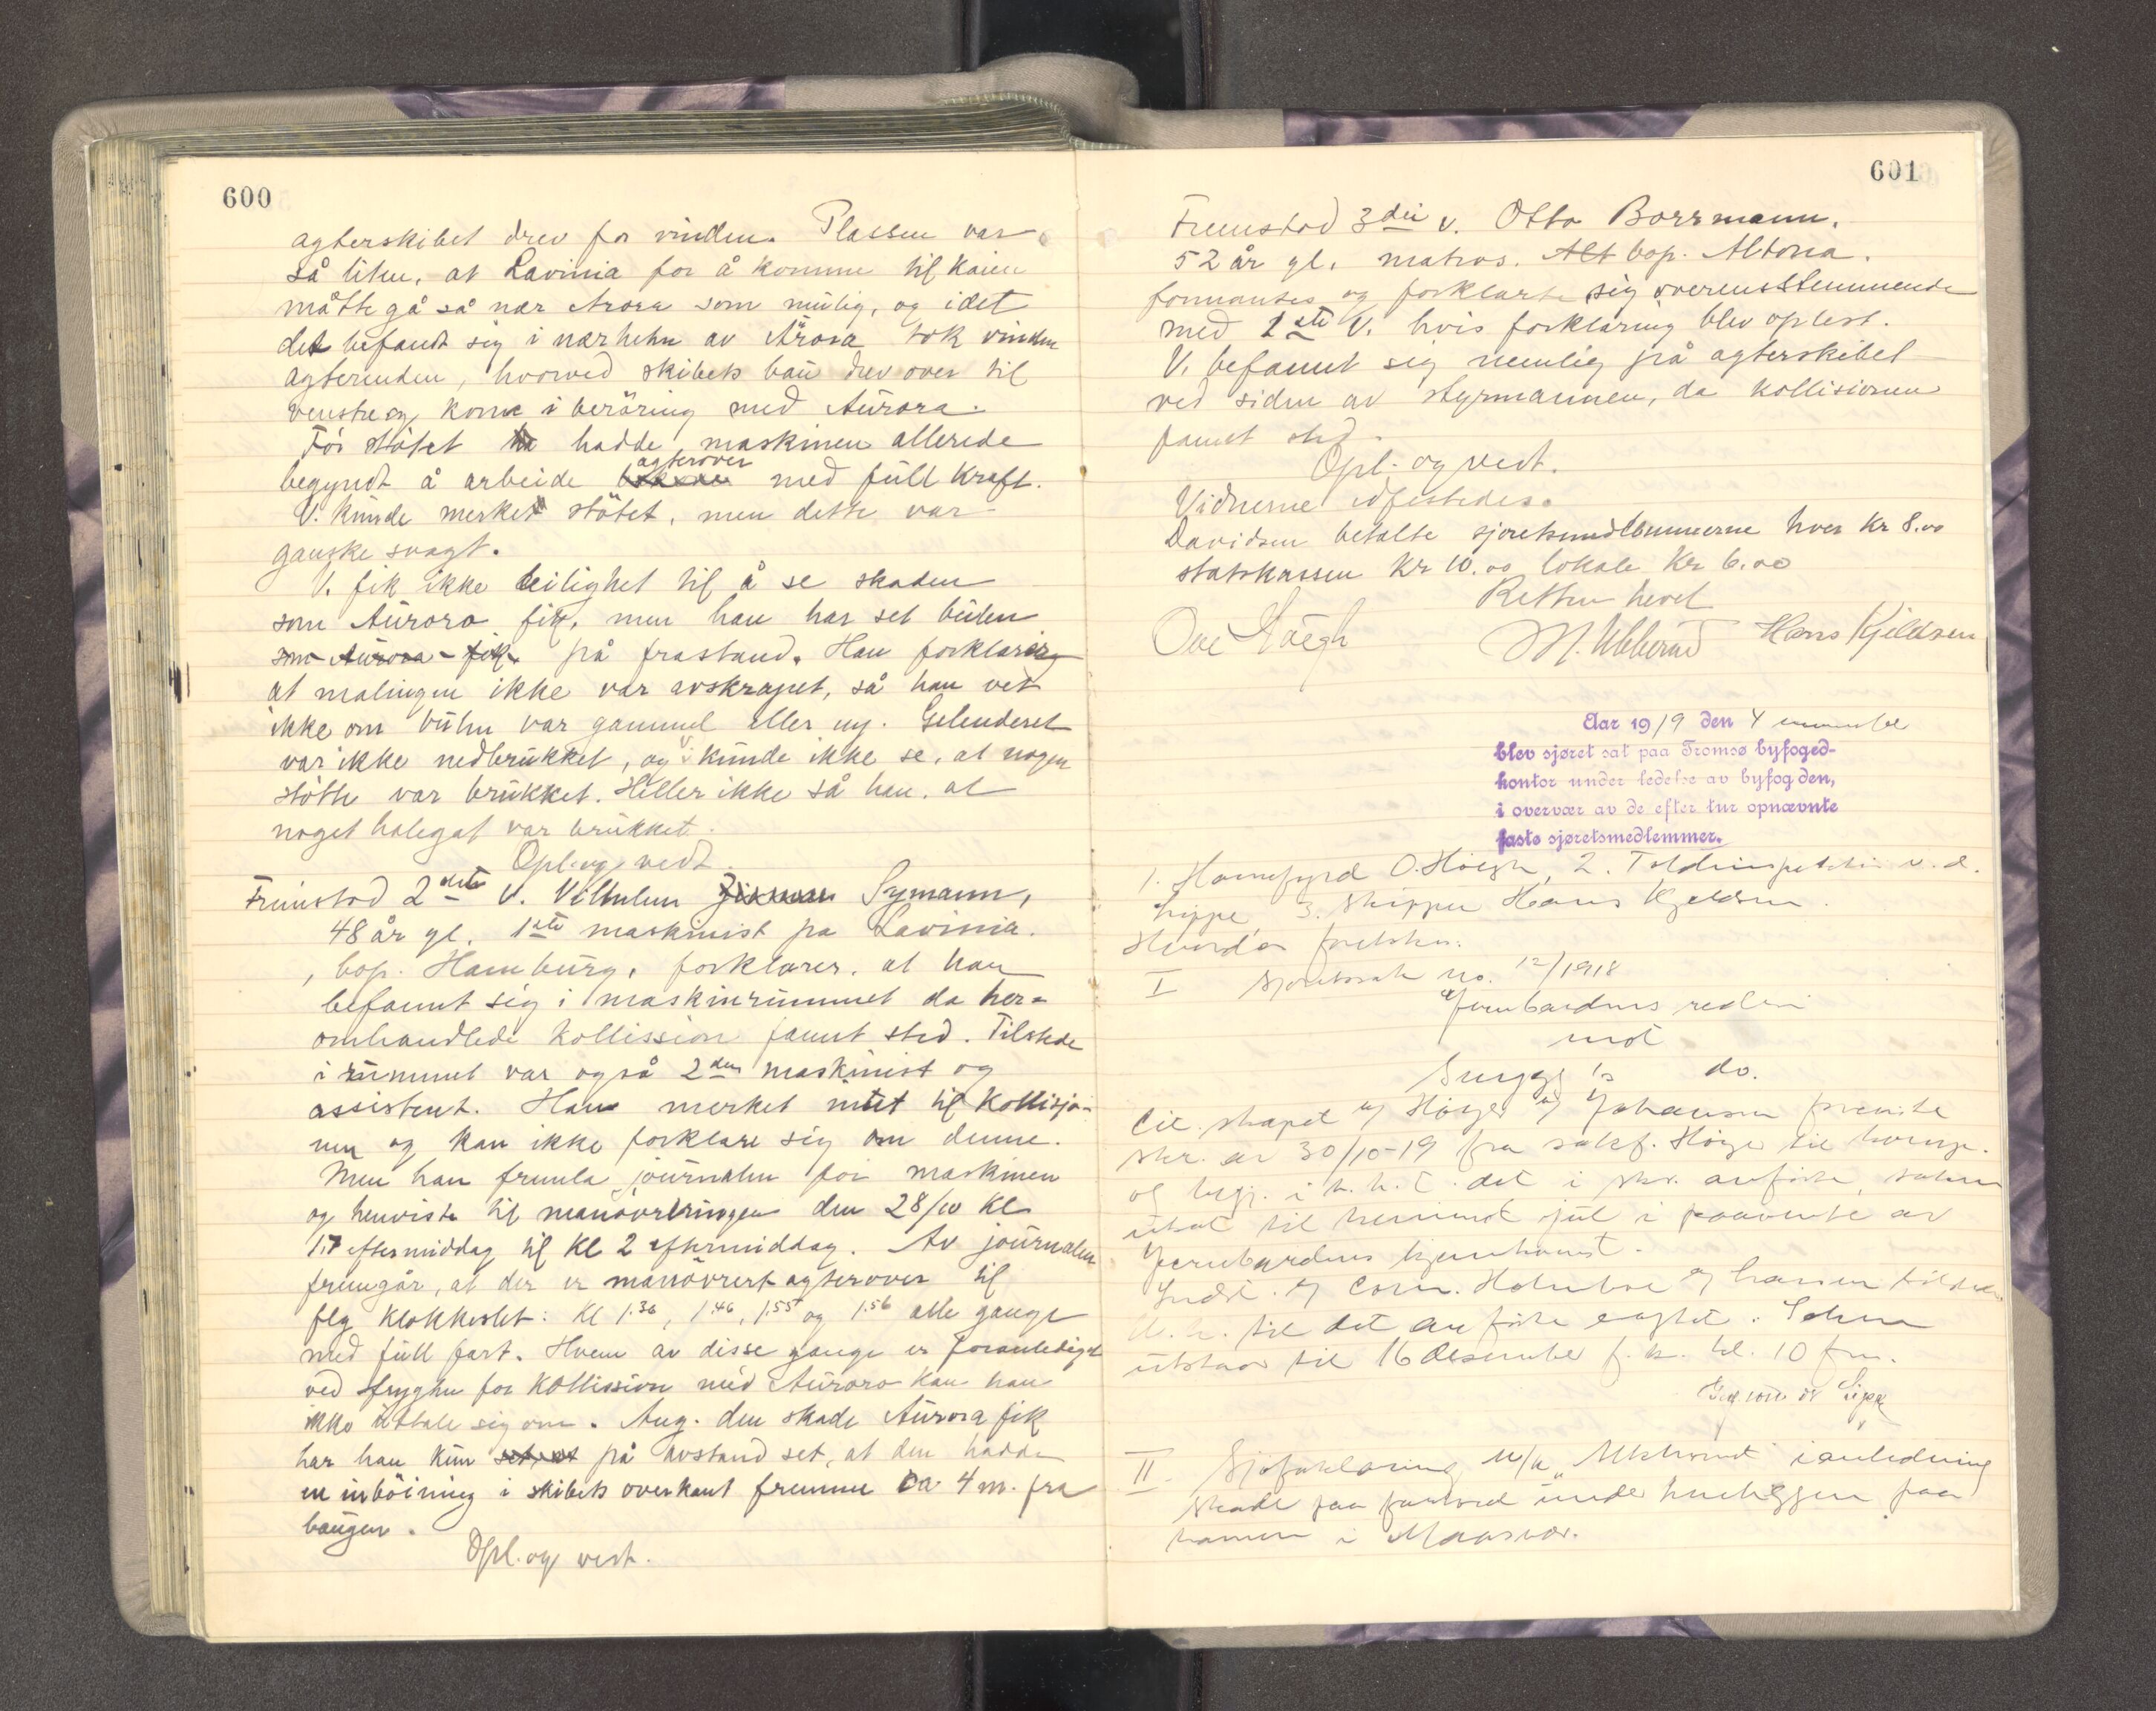 600
agterskibet drev for vinden. Plassen var
så liten, at Lavinia for å komme til kaien
måtte gå så nær Arora som mulig, og idet
det befandt sig i nærheten av Arora tok vinden
agterenden, hvorved skibets baug drev over til
venstre og kom i beröring med Aurora.
För stötet hadde maskinen allerede
begyndt å arbeide agterover med full kraft.
V. kunde merket stötet, men dette var
ganske svagt.
V. fik ikke leilighet til å se skaden
som Aurora fik, men han har set bulen
som Aurora fik på frastand. Han forklarer
at malingen ikke var avskrapet, så han vet
ikke om bulen var gammel eller ny. Gelenderet
var ikke nedbrukket, og v. kunde ikke se, at nogen
stötte var brukket. Heller ikke så han, at
noget halegat var brukket.
Opl. og vedt.
Fremstod 2det V. Vilhelm Symann,
48 år gl. 1ste maskinist på Lavinia.
, bop. Hamburg, forklarer, at han
befannt sig i maskinrummet da her-
omhandlede kollission fannt sted. Tilstede
i rummet var også 2den maskinist og
assistent. Han merket intet til kollisjo-
nen og kan ikke forklare sig om denne.
Men han fremla journalen for maskinen
og henviste til manövreringen den 28/10 kl
1.7 eftermiddag til kl 2 eftermiddag. Av journalen
fremgår, at der er manövrert agterover til
flg klokkeslet: kl 1.36, 1.46, 1.55 og 1.56 alle gange
med full fart. Hvem av disse gange er foranlediget
ved frygten for kollission med Aurora kan han
ikke uttale sig om. Ang. den skade Aurora fik
har han kun på avstand set, at den hadde
en inböining i skibets overkant fremme ca 4 m. fra
baugen.
Opl. og vedt.
601
Fremstod 3die v. Otto Borrmann,
52 år gl. matros. Alt bop. Altona.
formantes og forklarte sig overensstemmende
med 1ste V. hvis forklaring blev oplest.
V. befannt sig nemlig på agterskibet
ved siden av styrmannen, da kollisionen
fannt sted.
Opl. og vedt.
Vidnerne edfestedes.
Davidsen betalte sjoretsmedlemmerne hver kr 8.00
statskassen kr 10.00 lokale kr 6.00
Retten hevet
Ove Höegh Hans Kjeldsen
Aar 1919 den 4 november
blev sjøret sat paa Tromsø byfoged-
kontor under ledelse av byfogden,
i overvær av de efter tur opnævnte
faste sjøretsmedlemmer.
1. Havnefogd O. Höegh, 2. Toldinspektör v. d.
Lippe, 3. Skipper Hans Kjeldsen.
Hvorda foretokes:
I Sjøretssak no. 12/1918
Jernbardens rederi
mot
Snygg's do.
skr. av 30/10-19 fra sakf.
det i skr. anførte, saken
utsat til henimot jul i paavente av
Jernbardens hjemkomst.
til det anførte
utstaar til 16 desember f. k. kl. 10 fm.
II Sjøforklaring m/k i anledning
skade paa under henliggen paa
havnen i Maasvær.